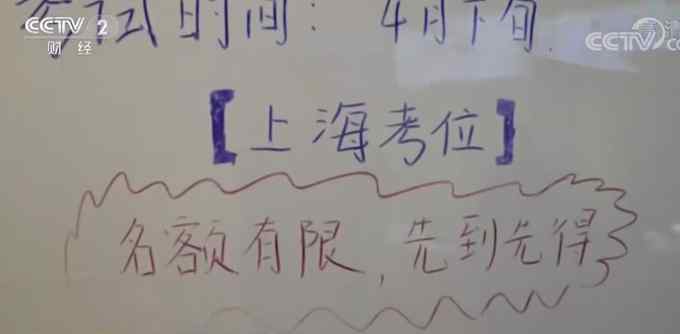 CCTV 2
财经
CCTV
考试时间：4月下旬
【上海考位】
名额有限，先到先得